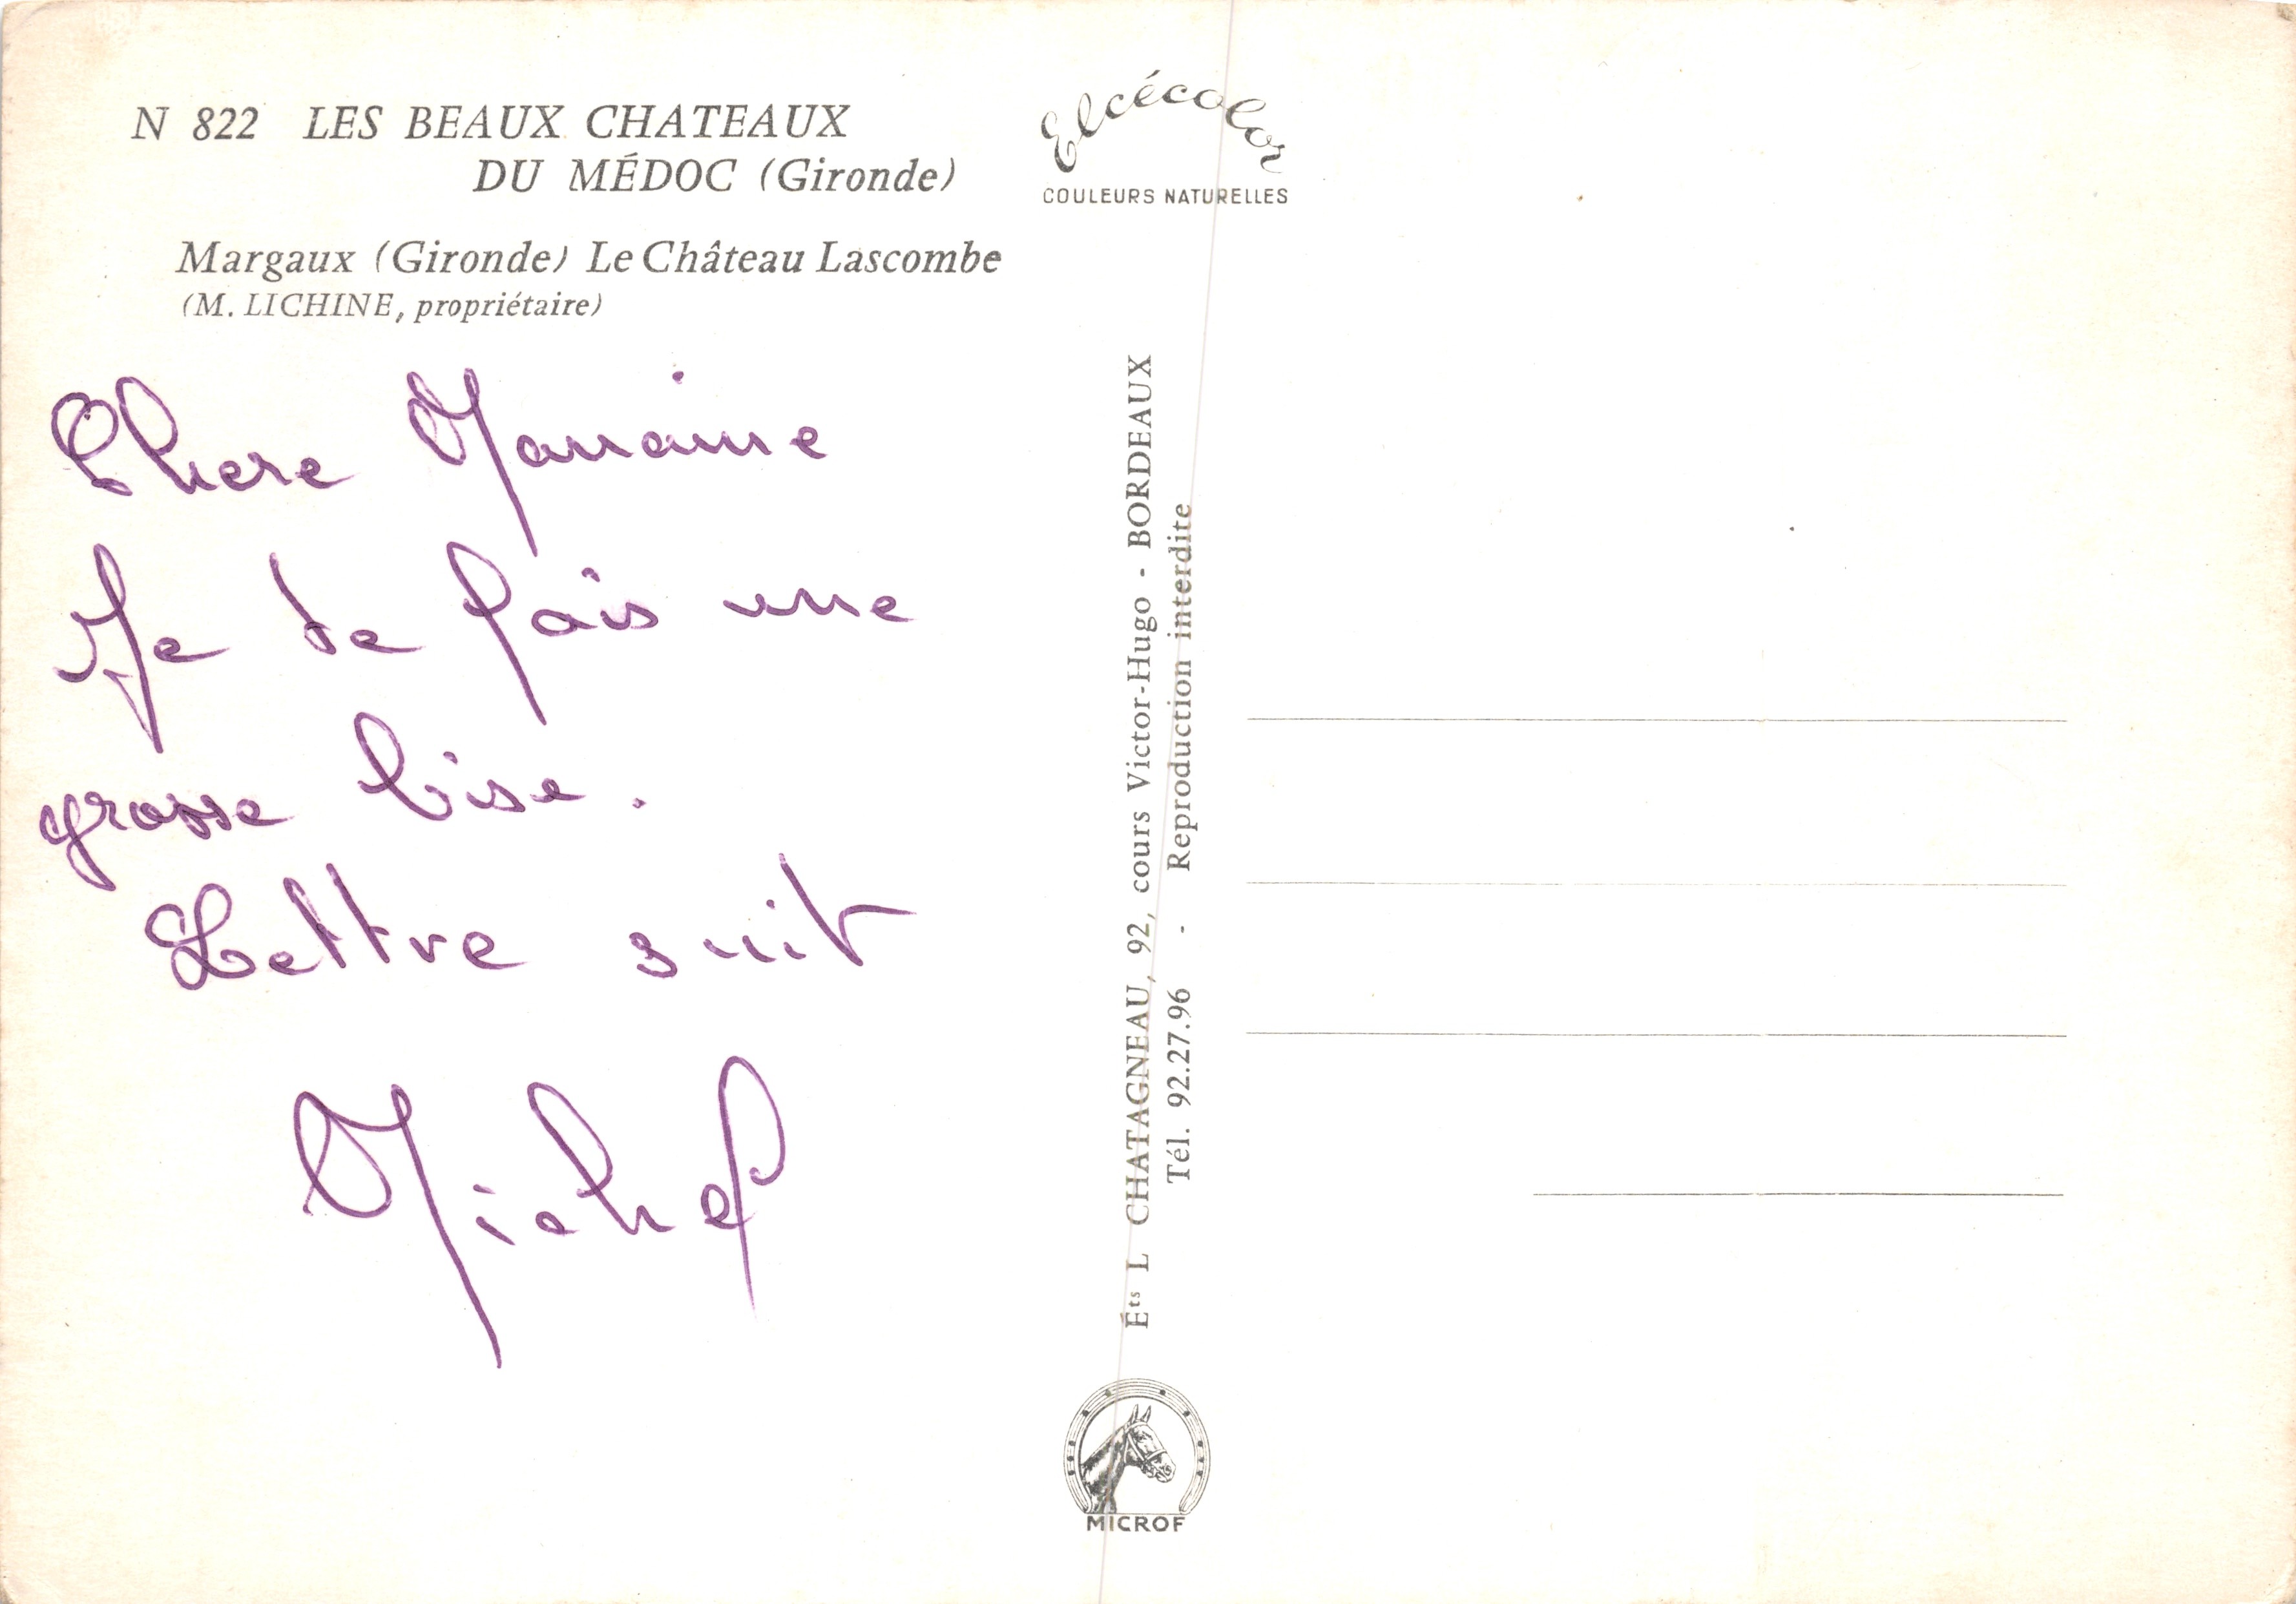 N 822 LES BEAUX CHATEAUX
DU MÉDOC (Gironde)
Margaux (Gironde) Le Château Lascombe
(M. LICHINE, propriétaire)
Chere Marraine
Je te fais une
grosse bise.
Lettre suit
Michel
Elcécolor
COULEURS NATURELLES
Éts L CHATAGNEAU, 92, cours Victor-Hugo - BORDEAUX
Tél. 92.27.96 - Reproduction interdite
MICROF